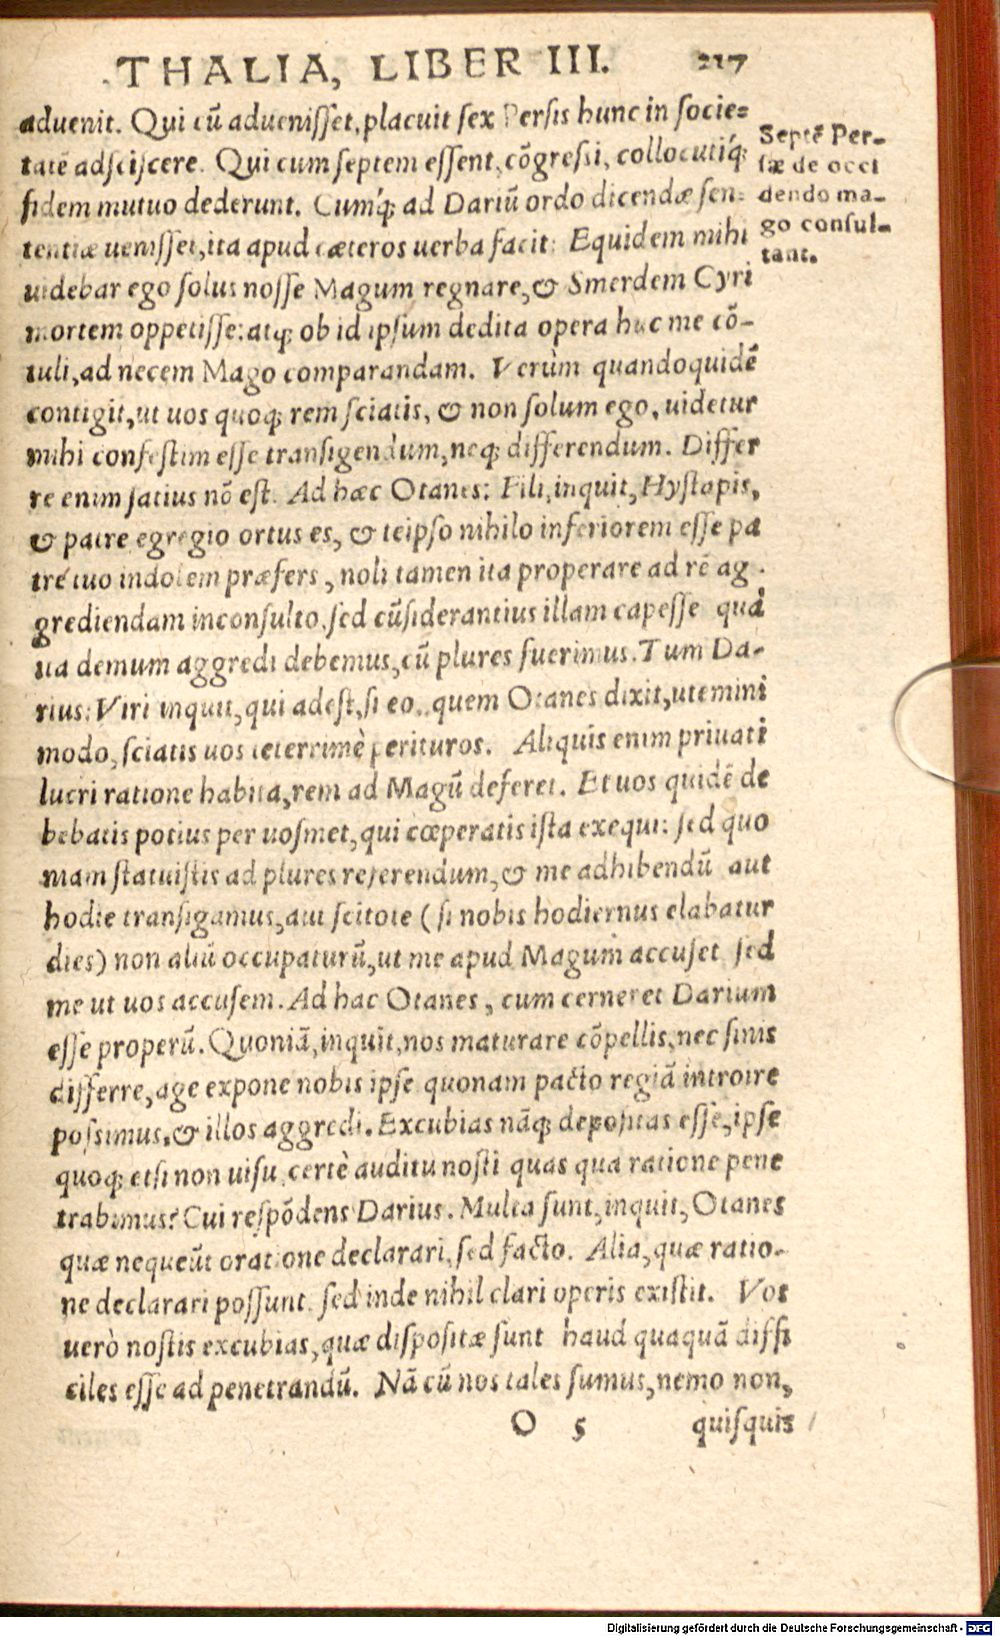 THALIA, LIBER III. 217
aduenit. Qui cũ aduenisset, placuit sex Persis hunc in socie=
tatẽ adsciscere. Qui cum septem essent, cõgressi, collocutiq́;
fidem mutuo dederunt. Cumq́; ad Dariũ ordo dicendæ sen=
tentiæ uenisset, ita apud cæteros uerba facit: Equidem mihi
uidebar ego solus nosse Magum regnare, & Smerdem Cyri
mortem oppetisse: atq; ob id ipsum dedita opera huc me cõ-
tuli, ad necem Mago comparandam. Verùm quandoquidẽ
contigit, ut uos quoq; rem sciatis, & non solum ego, uidetur
mihi confestim esse transigendum, neq; differendum. Differ
re enim satius nõ est. Ad hæc Otanes: Fili, inquit, Hystapis,
& patre egregio ortus es, & teipso nihilo inferiorem esse pa
tre tuo indolem præfers, noli tamen ita properare ad rẽ ag-
grediendam inconsulto, sed cũsiderantius illam capesse quã
ua demum aggredi debemus, cũ plures fuerimus. Tum Da-
rius: Viri inquit, qui adest, si eo, quem Otanes dixit, utemini
modo, sciatis uos teterrimè perituros. Aliquis enim priuati
lucri ratione habita, rem ad Magũ deferet. Et uos quidẽ de
bebatis potius per uosmet, qui cœperatis ista exequi: sed quo
niam statuistis ad plures referendum, & me adhibendũ aut
hodie transigamus, aut scitote (si nobis hodiernus elabatur
dies) non aliũ occupaturũ, ut me apud Magum accuset sed
me ut uos accusem. Ad hac Otanes, cum cerneret Darium
esse properũ. Quoniã, inquit, nos maturare cõpellis, nec sinis
differre, age expone nobis ipse quonam pacto regiã introire
possimus, & illos aggredi. Excubias nãq; depositas esse, ipse
quoq; etsi non uisu, certè auditu nosti quas qua ratione pene
trabimus? Cui respõdens Darius. Multa sunt, inquit, Otanes
quæ nequeũt oratione declarari, sed facto. Alia, quæ ratio-
ne declarari possunt, sed inde nihil clari operis existit. Vos
uerò nostis excubias, quæ dispositæ sunt haud quaquã diffi
ciles esse ad penetrandũ. Nã cũ nos tales sumus, nemo non,
O 5 quisquis
Septẽ Per-
sæ de occi
dendo ma-
go consul-
tant.
Digitalisierung gefördert durch die Deutsche Forschungsgemeinschaft - DFG